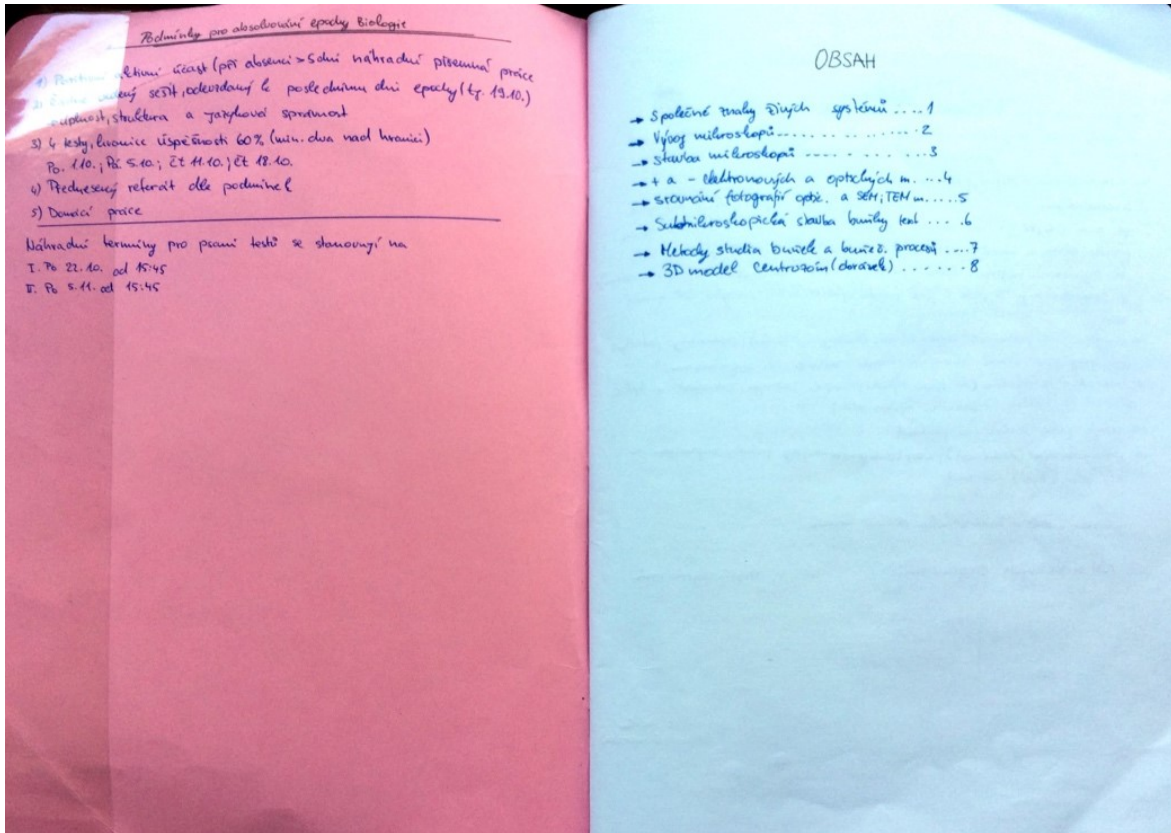 Podmínky pro absolvování epochy Biologie
1) Pozitivní aktivní účast (při absenci > 5 dní náhradní písemná práce
2) vedený sešit, odevzdaný k poslednímu dni epochy (tj. 19.10.)
úplnost, struktura a jazyková správnost
3) 4 testy, hranice úspěšnosti 60% (min. dva nad hranicí)
Po. 1.10.; Pá. 5.10.; čt 11.10.; čt 18.10.
4) Přednesený referát dle podmínek
5) Domácí práce
Náhradní termíny pro psaní testů se stanovují na
I. Po 22.10. od 15:45
II. Po 5.11. od 15:45
OBSAH
→ Společné znaky živých systémů .... 1
→ Vývoj mikroskopů .............. 2
→ stavba mikroskopů - - - - - . ... 3
→ + a - elektronových a optických m. ... 4
→ srovnání fotografií optic. a SEM, TEM m. .... 5
→ Submikroskopická stavba buňky text .... 6
→ Metody studia buněk a buněč. procesů .... 7
→ 3D model centrozom (dorávek) ...... 8